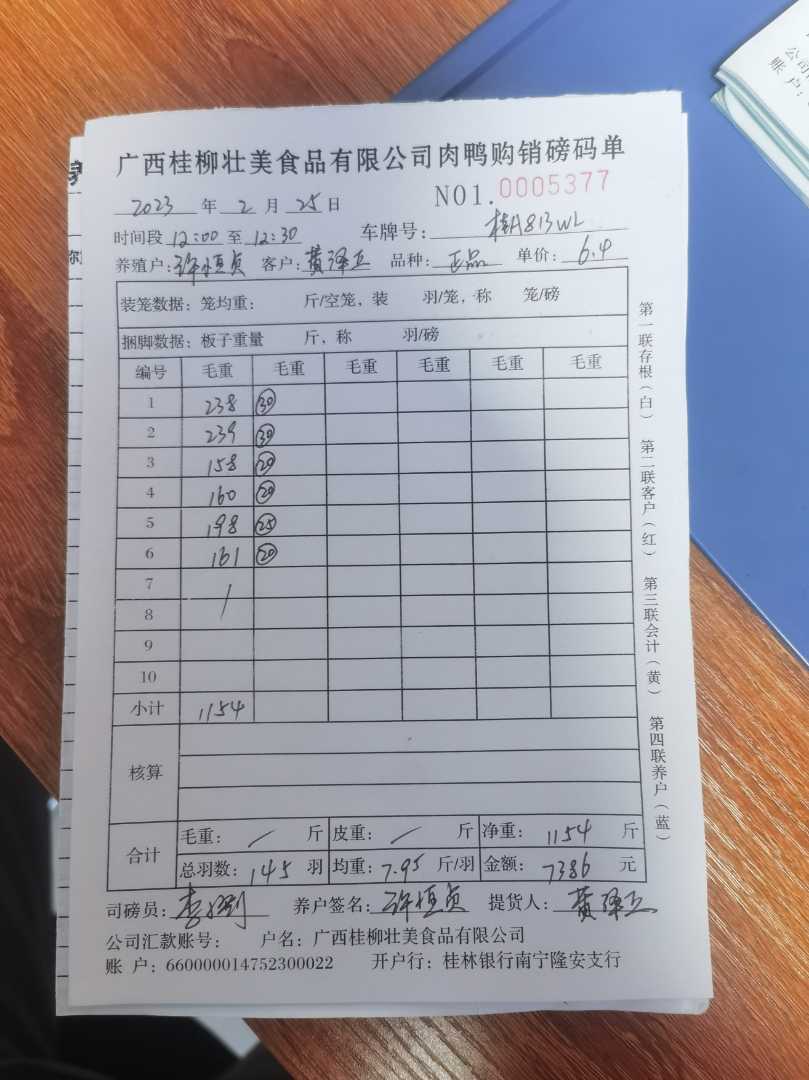 广西桂柳壮美食品有限公司肉鸭购销磅码单
2023 年 2 月 25 日 NO1.0005377
时间段 12:00 至 12:30 车牌号: 桂A813WL
养殖户: 许恒贞 客户: 黄泽 品种: 正品 单价: 6.4
装笼数据: 笼均重: 斤/空笼, 装 羽/笼, 称 笼/磅
捆脚数据: 板子重量 斤, 称 羽/磅
编号 毛重 毛重 毛重 毛重 毛重
1 238 30
2 239 30
3 158 20
4 160 20
5 198 25
6 161 20
7
8
9
10
小计 1154
核算
合计 毛重: / 斤 皮重: / 斤 净重: 1154 斤
总羽数: 145 羽 均重: 7.95 斤/羽 金额: 7386 元
司磅员: 李 养户签名: 许恒贞 提货人: 黄泽
公司汇款账号: 户名: 广西桂柳壮美食品有限公司
账 户: 660000014752300022 开户行: 桂林银行南宁隆安支行
第一联存根(白) 第二联客户(红) 第三联会计(黄) 第四联养户(蓝)
公司
账 户: